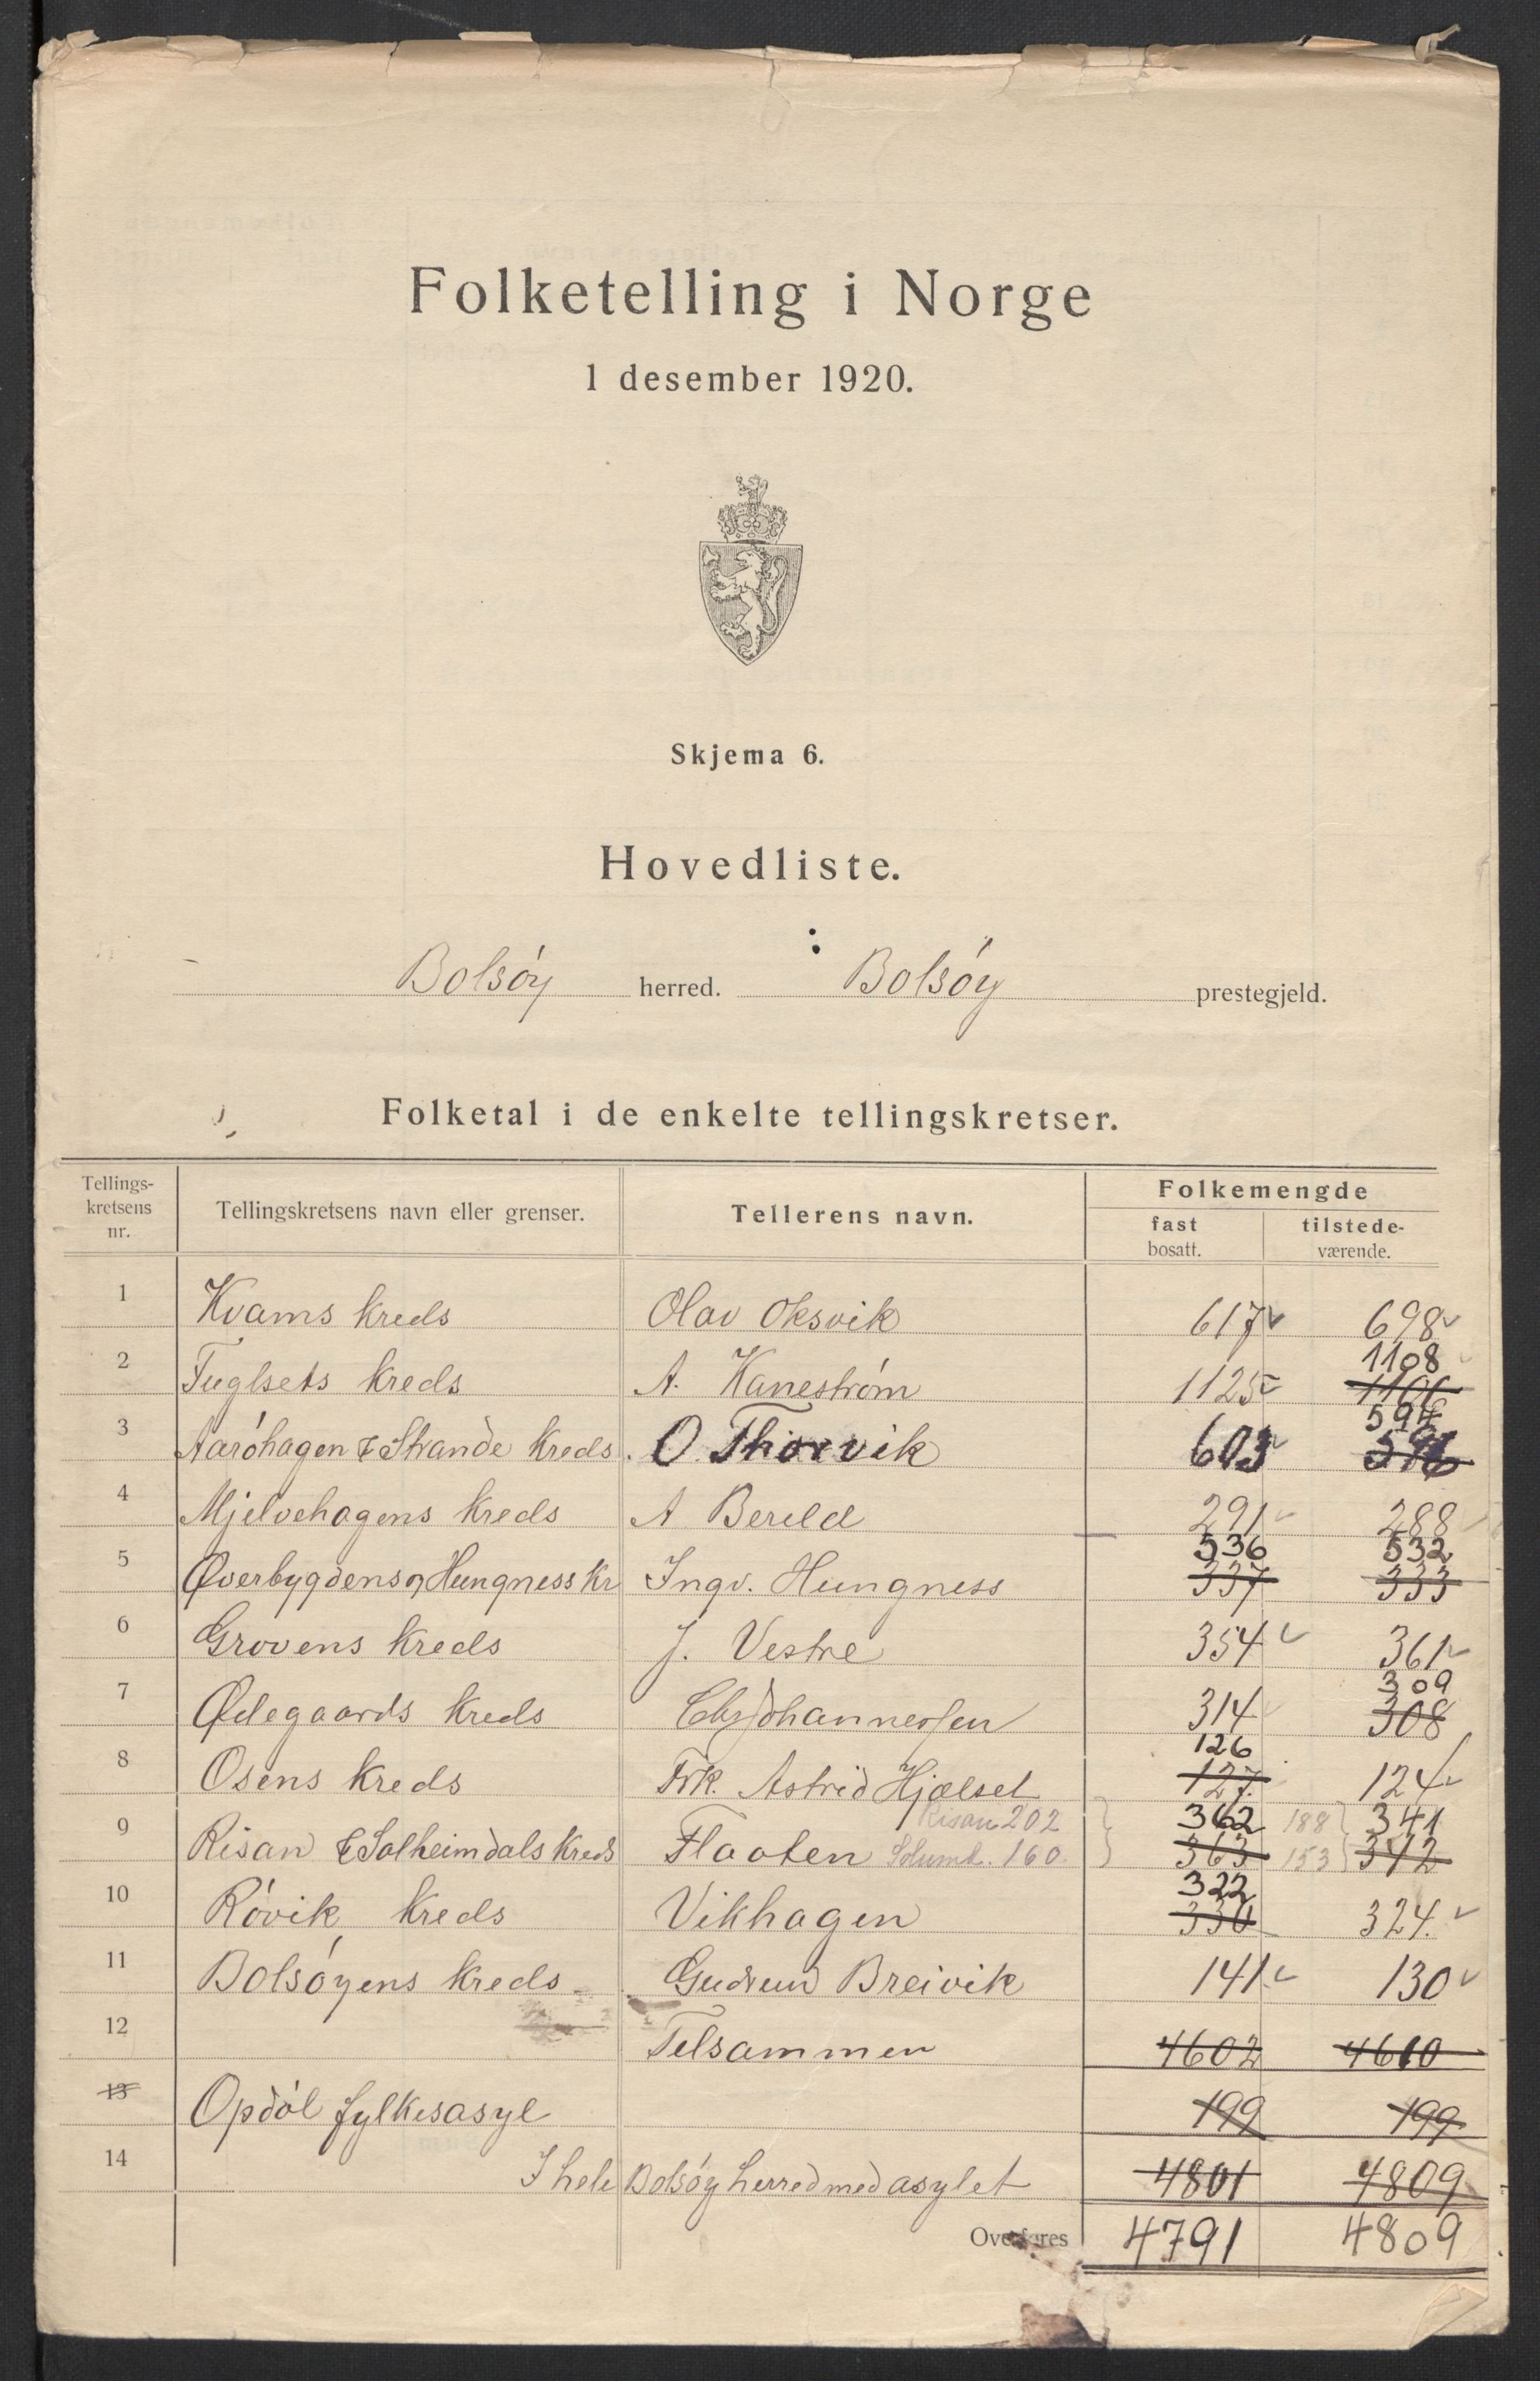 Folketelling i Norge
1 desember 1920.
Skjema 6.
Hovedliste.
Bolsöy herred. Bolsöy prestegjeld.
Folketal i de enkelte tellingskretser.
Tellings-
kretsens
nr.
Tellingskretsens navn eller grenser.
Tellerens navn.
Folkemengde
fast
bosatt.
tilstede-
værende.
1 Kvams kreds Olav Oksvik 617 698
1108
2 Fuglsets kreds A. Kanestrøm 1125 1106
594
3 Aaröhagen & Strande kreds. O. Thorvik 603 596
4 Mjelvehagens kreds A Bereld 291 288
536 532
5 Øverbygdens og Hungness Kr Ingv. Hungness 337 333
6 Grovens kreds J. Vestre 354 361
309
7 Ødegaards kreds Johannessen 314 308
126
8 Osens kreds Frk. Astrid Hjelset 127 124
Risan 202 362 188 341
9 Risan & Solheimdals kreds Flaaten 160. 363 153 342
322
10 Rövik kreds Vikhagen 330 324.
11 Bolsöyens kreds Gudrun Breivik 141 130
12 Telsammen 4602 4610
13 Opdöl fylkesasyl 199 199
14 I hele Bolsöy herred med asylet 4801 4809
Overføres 4791 4809